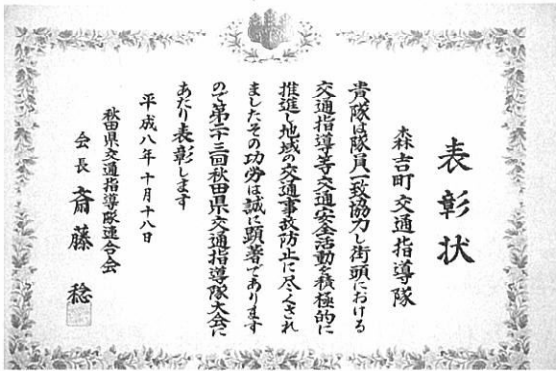 表彰状
森吉町交通指導隊
貴隊は隊員一致協力し街頭における
交通指導等交通安全活動を積極的に
推進し地域の交通事故防止に尽くされ
ましたその功労は誠に顕著であります
ので第二十三回秋田県交通指導隊大会に
あたり表彰します
平成八年十月十八日
秋田県交通指導隊連合会
会長 斎藤 稔